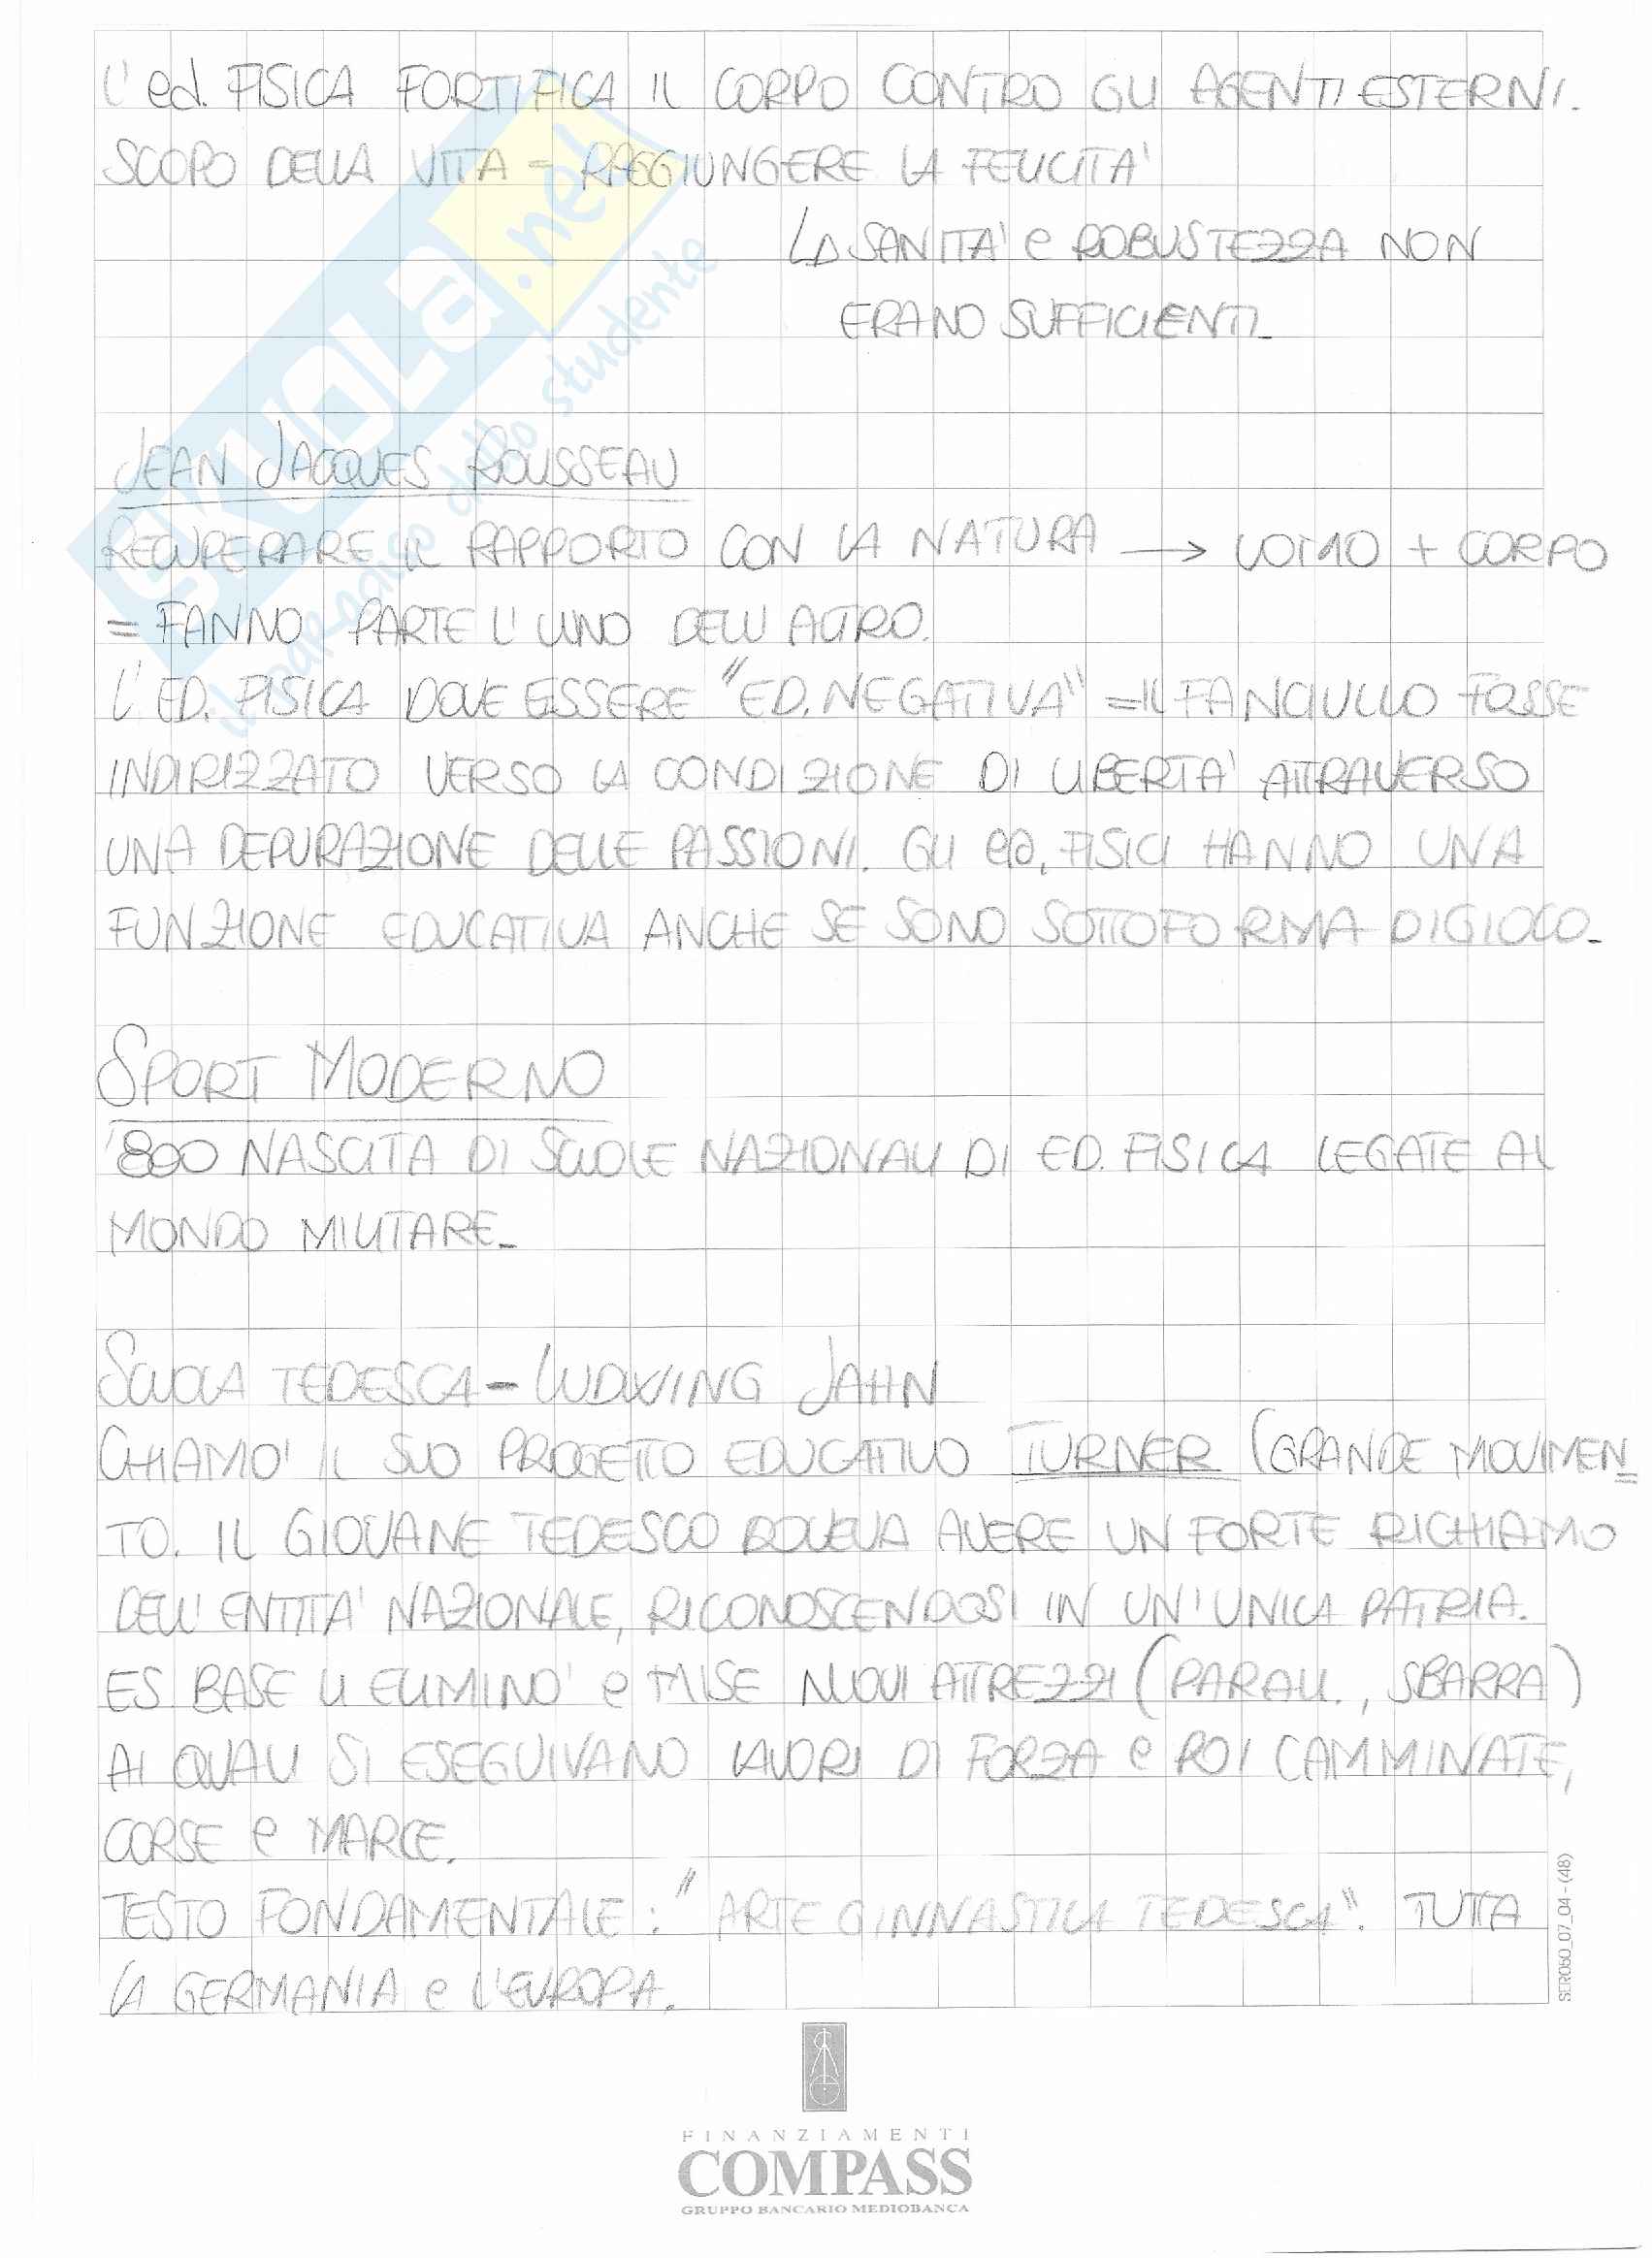 L' ed. FISICA FORTIFICA IL CORPO CONTRO GLI AGENTI ESTERNI.
SCOPO DELLA VITA = RAGGIUNGERE LA FELICITA'
LA SANITA' e ROBUSTEZZA NON
ERANO SUFFICIENTI_
JEAN JACQUES ROUSSEAU
RECUPERARE IL RAPPORTO CON LA NATURA → UOMO + CORPO
= FANNO PARTE L' UNO DELL' ALTRO.
L' ED. FISICA DOVE ESSERE "ED. NEGATIVA" = IL FANCIULLO FOSSE
INDIRIZZATO VERSO LA CONDIZIONE DI LIBERTA' ATTRAVERSO
UNA DEPURAZIONE DELLE PASSIONI. GLI FISICI HANNO UNA
FUNZIONE EDUCATIVA ANCHE SE SONO SOTTOFORMA DI GIOCO_
SPORT MODERNO
'800 NASCITA DI SCUOLE NAZIONALI DI ED. FISICA LEGATE AL
MONDO MILITARE_
SCUOLA TEDESCA - LUDWING JAHN
CHIAMO' IL SUO PROGETTO EDUCATIVO TURNER (GRANDE MOVIMEN
TO. IL GIOVANE TEDESCO DOVEVA AVERE UN FORTE RICHIAMO
DELL' ENTITA' NAZIONALE, RICONOSCENDOSI IN UN' UNICA PATRIA.
ES. BASE LI ELIMINO' e MISE NUOVI ATTREZZI (PARALL., SBARRA)
AI QUALI SI ESEGUIVANO LAVORI DI FORZA e POI CAMMINATE,
CORSE e MARCE.
TESTO FONDAMENTALE: "ARTE GINNASTICA TEDESCA". TUTTA
LA GERMANIA e L'EUROPA.
SER050_07_04 - (48)
FINANZIAMENTI
COMPASS
GRUPPO BANCARIO MEDIOBANCA
skuola.net
il paradiso dello studente